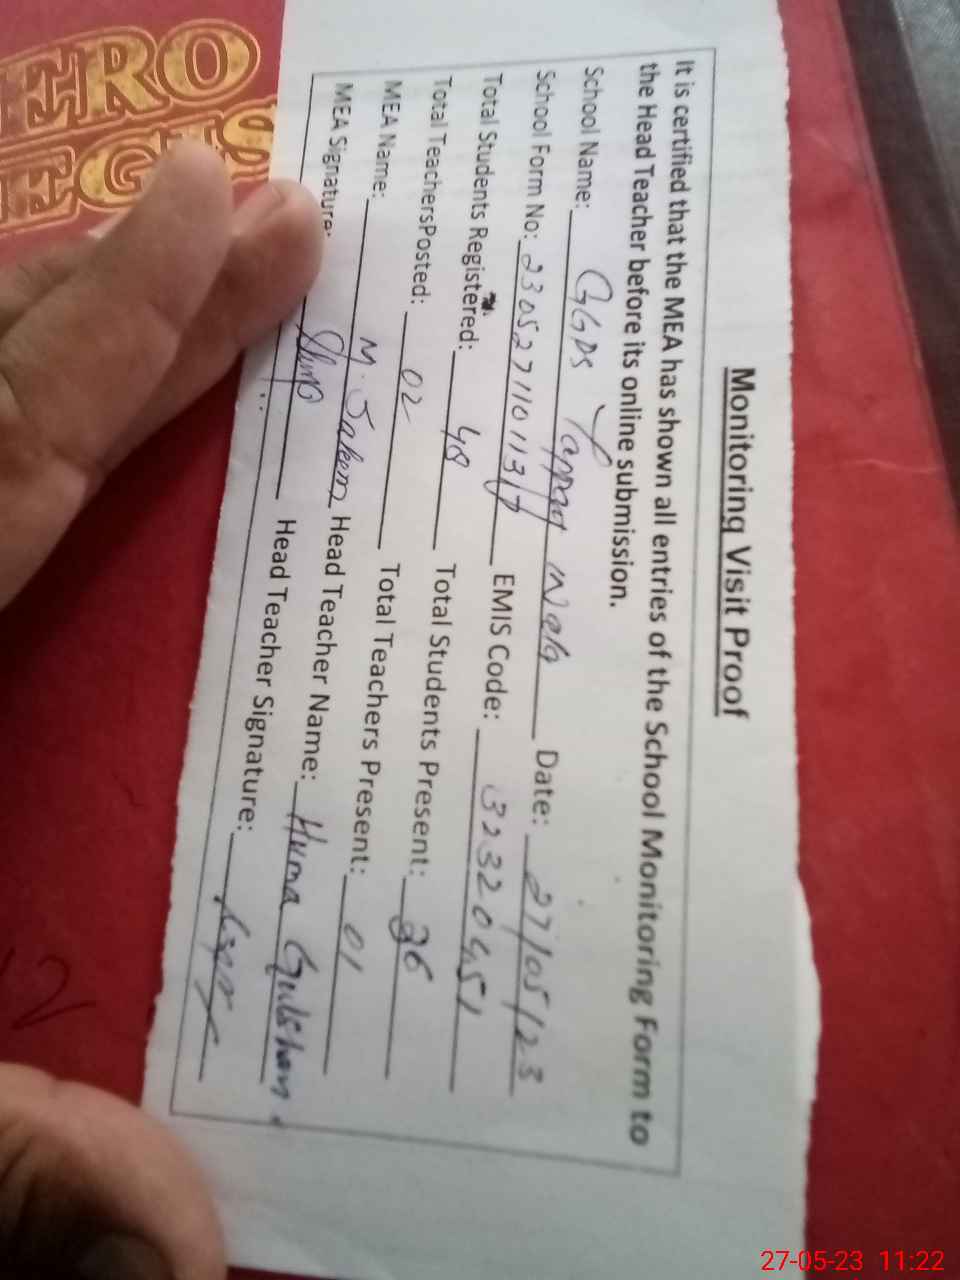 Monitoring Visit Proof
It is certified that the MEA has shown all entries of the School Monitoring Form to
the Head Teacher before its online submission.
School Name: GGPS Wala Date: 27/05/23
School Form No: EMIS Code: 32320451
Total Students Registered: 48 Total Students Present: 36
Total TeachersPosted: 02 Total Teachers Present: 01
MEA Name: M. Saleem Head Teacher Name: Huma Gulshan.
MEA Signature: Head Teacher Signature:
ERO
27-05-23 11:22